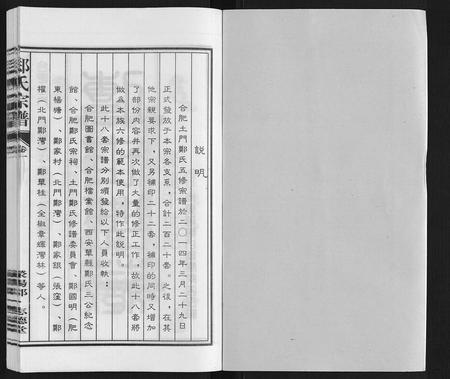 説明
合肥土門鄭氏五修宗譜於二〇一四年三月二十九日
正式發放于本宗各支系，合計二百二十套。之後，在其
他宗親要求下，又另補印二十二套，補印的同時又增加
了部份内容并再次做了大量的修正工作，故此十八套將
做為本族六修的範本使用，特作此說明。
此十八套宗譜分别頒發给以下人員收執：
合肥圖書館、合肥檔案館、西安華縣鄭氏三公紀念
館、合肥鄭氏宗祠、土門鄭氏修譜委員會、鄭國明（肥
東楊塘）、鄭家村（北門鄭灣）、鄭家銀（張窪）、鄭
權（北門鄭灣）、鄭華柱（全椒章輝灣林）等人。
鄭氏宗譜
卷一
滎陽郡